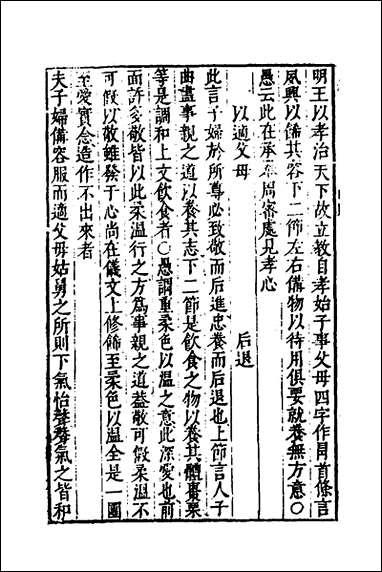 明王以孝治天下故立教自孝始子事父母四字作冐首條言
夙興以飾其容下二節左右備物以待用俱要就養無方意〇
愚云此在承奉周審處見孝心
以適父母　后退
此言子婦於所尊必致敬而后進忠養而后退也上節言人子
曲盡事親之道以養其志下二節是飲食之物以養其體棗栗
等是調和上文飲食者〇愚謂重柔色以溫之意此深愛也前
面許多敬皆以此柔溫行之方為事親之道葢敬可假柔溫不
可假以敬雖發于心尚在儀文上修飾至柔色以溫全是一團
至愛實念造作不出來者
夫子婦備容服而適父母姑舅之所則下氣怡聲聲氣之皆和